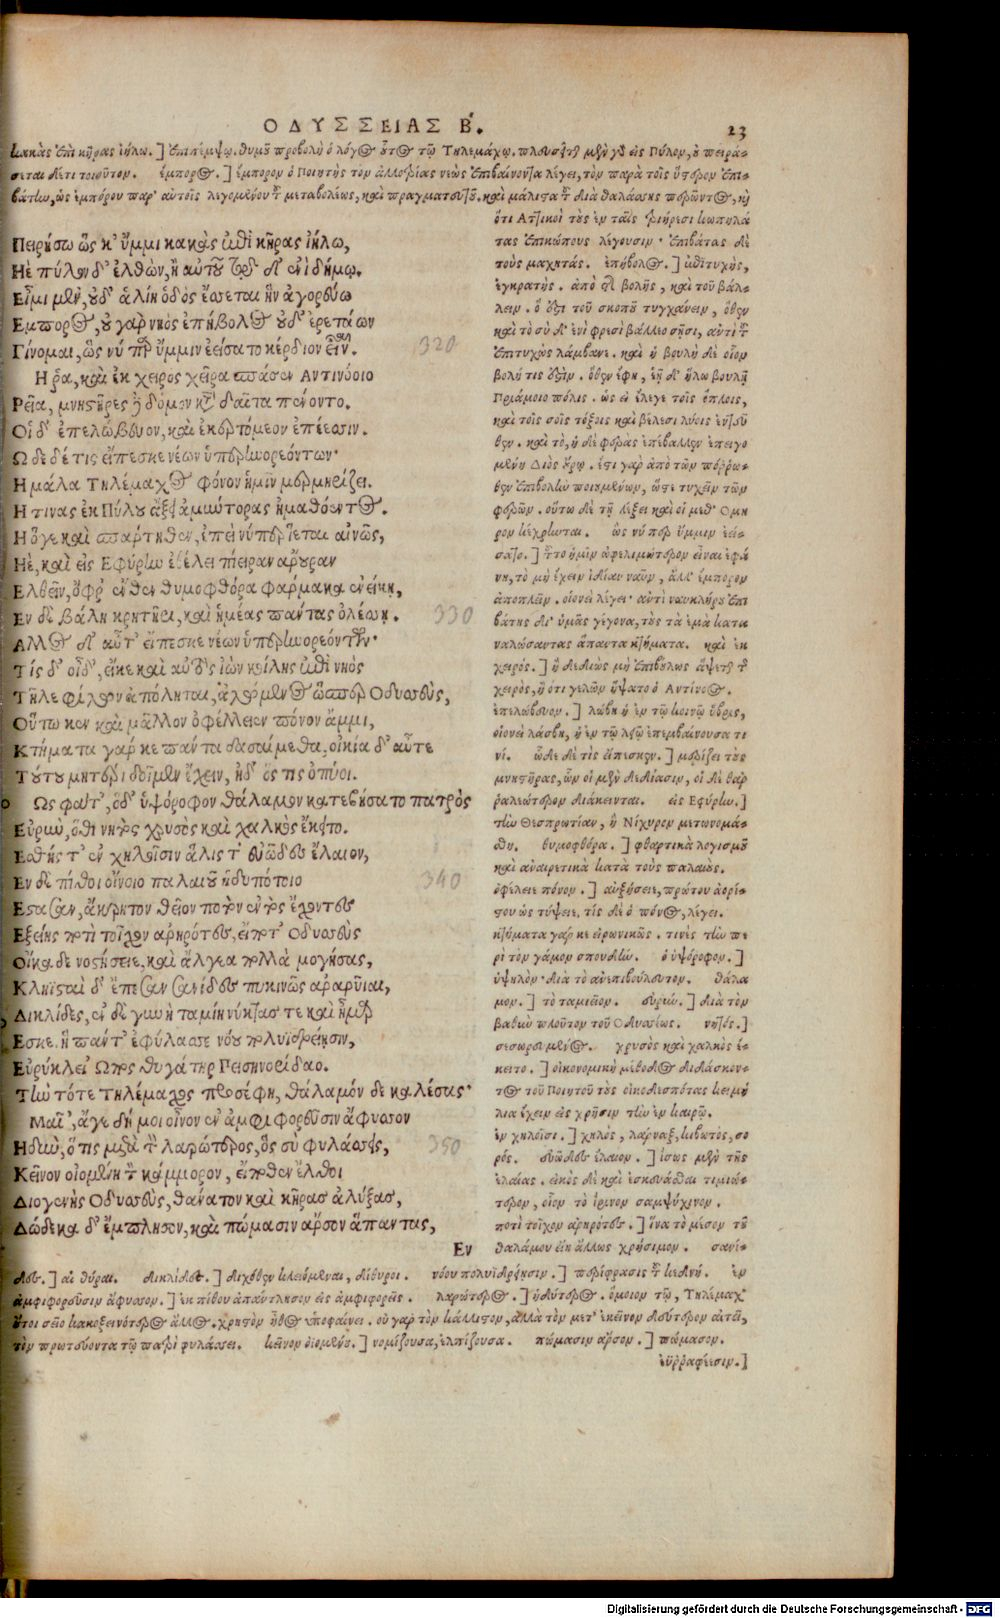 ΟΔΥΣΣΕΙΑΣ Β.
23
κακὰς ἐπὶ κῆρας ἰήλω.] ἐπιπέμψω. θυμοῦ προβολὴ ὁ λόγος οὗτος τῷ Τηλεμάχῳ. πλευσεῖται μὲν γὰρ εἰς Πύλον, οὐ πειρά-
σεται δὲ τι τοιοῦτον. ἔμπορος.] ἔμπορον ὁ Ποιητὴς τὸν ἀλλοτρίας νεὼς ἐπιβαίνοντα λέγει, τὸν παρὰ τοῖς ὕστερον ἐπι-
βάτην, ὡς ἐμπόρου παρ' αὐτοῖς λεγομένου τοῦ μεταβολέως, καὶ πραγματευτοῦ. καὶ μάλιστα τοῦ διὰ θαλάσσης περῶντος, ἢ
Πειρήσω ὥς κ' ὔμμι κακὰς ἐπὶ κῆρας ἰήλω,
Ηὲ πύλον δ' ἐλθὼν, ἢ αὐτοῦ τῷδ' ἐνὶ δήμῳ.
Εἶμι μὲν, οὐδ' ἁλίη ὁδὸς ἔσσεται ἣν ἀγορεύω
Εμπορος, οὐ γὰρ νηὸς ἐπήβολος οὐδ' ἐρετάων
Γίνομαι, ὥς νύ περ ὔμμιν ἐείσατο κέρδιον εἶναι.
320
Η ῥα, καὶ ἐκ χειρὸς χεῖρα σπάσεν Αντινόοιο
Ρεῖα, μνηστῆρες δὲ δόμον κάτα δαῖτα πένοντο.
Οἱ δ' ἐπελώβευον, καὶ ἐκερτόμεον ἐπέεσσιν.
Ωδε δέ τις εἴπεσκε νέων ὑπερηνορεόντων·
Η μάλα Τηλέμαχος φόνον ἡμῖν μερμηρίζει.
Η τινας ἐκ Πύλου ἄξει ἀμύντορας ἠμαθόεντος.
Η ὅγε καὶ σπάρτηθεν, ἐπεὶ νύ περ ἵεται αἰνῶς,
Ηὲ, καὶ εἰς Εφύρην ἐθέλει πίειραν ἄρουραν
Ελθεῖν, ὄφρ' ἔνθεν θυμοφθόρα φάρμακα ἐνείκῃ,
Εν δὲ βάλῃ κρητῆρι, καὶ ἡμέας πάντας ὀλέσσῃ.
330
Αλλος δ' αὖτ' εἴπεσκε νέων ὑπερηνορεόντων·
Τίς δ' οἶδ', εἴκε καὶ αὐτὸς ἰὼν κοίλης ἐπὶ νηὸς
Τῆλε φίλων ἀπόληται, ἀλώμενος ὥσπερ Οδυσσεὺς,
Οὕτω κεν καὶ μᾶλλον ὀφέλλειεν πόνον ἄμμι,
Κτήματα γάρ κε πάντα δασαίμεθα. οἰκία δ' αὖτε
Τούτου μητέρι δοῖμεν ἔχειν, ἠδ' ὅς τις ὀπύοι.
Ως φάτ', ὁ δ' ὑψόροφον θάλαμον κατεβήσατο πατρὸς
Εὐρὺν, ὅθι νητὸς χρυσὸς καὶ χαλκὸς ἔκειτο.
Εσθής τ' ἐν χηλοῖσιν ἅλις τ' εὐῶδες ἔλαιον,
Εν δὲ πίθοι οἴνοιο παλαιοῦ ἡδυπότοιο
340
Εστασαν, ἄκρητον θεῖον ποτὸν ἐντὸς ἔχοντες
Εξείης ποτὶ τοῖχον ἀρηρότες, εἴποτ' Οδυσσεὺς
Οἴκαδε νοστήσειε, καὶ ἄλγεα πολλὰ μογήσας,
Κληϊσταὶ δ' ἔπεσαν σανίδες πυκινῶς ἀραρυῖαι,
Δικλίδες, ἐν δὲ γυνὴ ταμίη νύκτας τε καὶ ἦμαρ
Εσκε. ἣ πάντ' ἐφύλασσε νόου πολυϊδρείῃσιν,
Εὐρύκλει' Ωπος θυγάτηρ Πεισηνορίδαο.
Τὴν τότε Τηλέμαχος προσέφη, θάλαμόν δε καλέσας·
Μαῖ', ἄγε δή μοι οἶνον ἐν ἀμφιφορεῦσιν ἄφυσσον
Ηδὺν, ὅτις μετὰ τὸν λαρώτερος, ὃς σὺ φυλάσσεις,
350
Κεῖνον οἰομένη τὸν κάμμορον, εἴποθεν ἔλθοι
Διογενὴς Οδυσσεὺς, θάνατον καὶ κῆρας ἀλύξας,
Δώδεκα δ' ἔμπλησον, καὶ πώμασιν ἄρσον ἅπαντας,
Εν
ὅτι Αττικοὶ τοὺς ἐν ταῖς τριήρεσι κωπηλά
τας ἐπικώπους λέγουσιν· ἐπιβάτας δὲ
τοὺς μαχητάς. ἐπήβολος.] ἐπιτυχὴς,
ἐγκρατής. ἀπὸ τῆς βολῆς, καὶ τοῦ βάλ-
λειν. ὅ ἐστι τοῦ σκοποῦ τυγχάνειν, ὅθεν
καὶ τὸ σὺ δ' ἐνὶ φρεσὶ βάλλεο σῇσι, ἀντὶ τοῦ
ἐπιτυχῶς λάμβανε. καὶ ἡ βουλὴ δὲ οἷον
βολή τις ἐστίν. ὅθεν ἔφη, ἐῇ δ' ἥλω βουλῇ
Πριάμοιο πόλις. ὡς εἰ ἔλεγε τοῖς ὅπλοις,
καὶ τοῖς σοῖς τόξοις καὶ βέλεσι λύσις ἐντεῦ
θεν. καὶ τὸ, ἡ δὲ φορὰς ἐπέβαλλεν ἐπειγο
μένη Διὸς οὔρῳ. ἔστι γὰρ ἀπὸ τῶν πόρρω-
θεν ἐπιβολὴν ποιουμένων, ὥστε τυχεῖν τῶν
φερῶν. οὕτω δὲ τῇ λέξει καὶ οἱ μεθ' Ομη
ρον κέχρηνται. ὥς νύ περ ὔμμιν ἐεί-
σατο.] τοῦτο ὑμῖν ὠφελιμώτερον εἶναι ἐφά
νη, τὸ μὴ ἔχειν ἰδίαν ναῦν, ἀλλ' ἔμπορον
ἀποπλεῖν. οἱονεὶ λέγει· ἀντὶ ναυκλήρου ἐπι
βάτης δι' ὑμᾶς γέγονα, τοὺς τὰ ἐμὰ κατα
ναλώσαντας ἅπαντα κτήματα. καὶ ἐκ
χειρός.] ἢ δεδιὼς μὴ ἐπιβούλως ἅψεται τῆς
χειρὸς, ἢ ὅτι γελῶν ἥψατο ὁ Αντίνοος.
ἐπελώβευον.] λώβη ἡ ἐν τῷ κοινῷ ὕβρις,
οἱονεὶ λάσβη, ἡ ἐν τῷ λεῷ ἐπεμβαίνουσά τι
νι. ὧδε δέ τις εἴπεσκεν.] μερίζει τοὺς
μνηστῆρας, ὧν οἱ μὲν δεδίασιν, οἱ δὲ θαρ
ραλεώτερον διάκεινται. εἰς Εφύρην.]
τὴν Θεσπρωτίαν, ἢ Νίχυρον μετωνομά-
σθη. θυμοφθόρα.] φθαρτικὰ λογισμοῦ
καὶ ἀναιρετικὰ κατὰ τοὺς παλαιούς.
ὀφέλειε πόνον.] αὐξήσειε, πρώτου ἀορί-
στου ὡς τύψειε. τίς δὲ ὁ πόνος, λέγει.
κτήματα γάρ κε εἰρωνικῶς. τινὲς τὴν πε
ρὶ τὸν γάμον σπουδήν. ὁ ὑψόροφον.]
ὑψηλὸν· διὰ τὸ ἀνεπιβούλευτον. θάλα
μον.] τὸ ταμιεῖον. εὐρύν.] διὰ τὸν
βαθὺν πλοῦτον τοῦ Οδυσσέως. νητός.]
σεσωρευμένος. χρυσὸς καὶ χαλκὸς ἔ-
κειτο.] οἰκονομικὴ μέθοδος διδάσκον-
τος τοῦ Ποιητοῦ τοὺς οἰκοδεσπότας κειμή
λια ἔχειν εἰς χρῆσιν τὴν ἐν καιρῷ.
ἐν χηλοῖσι.] χηλὸς, λάρναξ, κιβωτὸς, σο
ρός. εὐῶδες ἔλαιον.] ἴσως μὲν τῆς
ἐλαίας. εἰκὸς δὲ καὶ ἐσκευάσθαι τιμιώ-
τερον, οἷον τὸ ἴρινον σαμψύχινον.
ποτὶ τοῖχον ἀρηρότες.] ἵνα τὸ μέσον τοῦ
θαλάμου εἴη ἄλλως χρήσιμον. σανί-
δες.] αἱ θύραι. δικλίδες.] διχόθεν κλειόμεναι, δίθυροι. νόου πολυϊδρίῃσιν.] περίφρασις τοῦ κεδνή. ἐν
ἀμφιφορεῦσιν ἄφυσσον.] ἐκ πίθου ἀπάντλησον εἰς ἀμφιφορεῖς. λαρώτερος.] ἡδύτερος. ὅμοιον τῷ, Τηλέμαχ'
οὔτοι σεῖο κακοξεινότερος ἄλλος. χρηστὸν ἦθος ὑποφαίνει. οὐ γὰρ τὸν κάλλιστον, ἀλλὰ τὸν μετ' ἐκεῖνον δεύτερον αἰτεῖ,
τὸν πρωτεύοντα τῷ πατρὶ φυλάσσει. κεῖνον ὀιομένη.] νομίζουσα, ἐλπίζουσα. πώμασιν ἄρσον.] πώμασον.
ἐϋῤῥαφέεσσιν.]
Digitalisierung gefördert durch die Deutsche Forschungsgemeinschaft - DFG